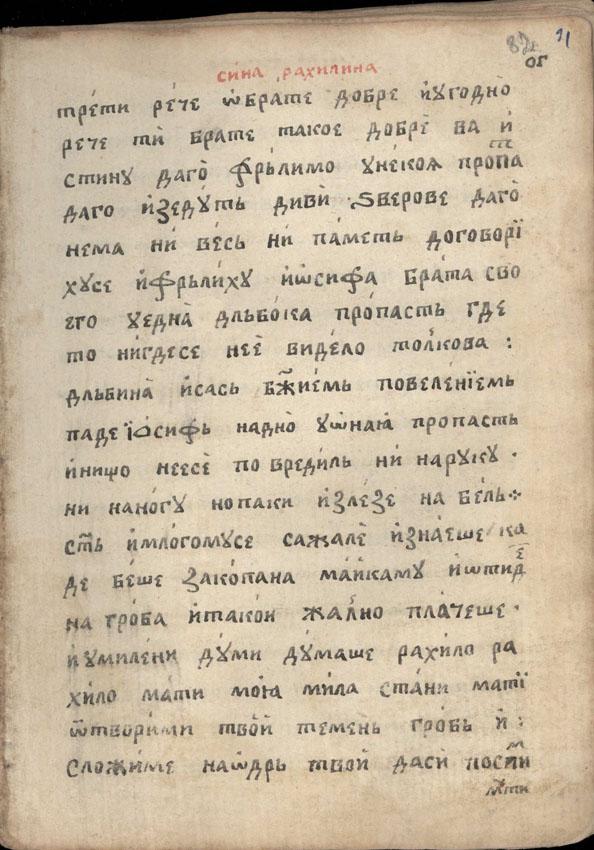 82 91
ог
си́на рахилина
тре́ти ре́че ѡ҆брате добре и҆угоднѐ
рече тѝ брате такое добрѐ ва и҆
стину даго̀ фрьлимо уне́коꙗ пропⷭ҇та
даго и҆зеду́ть дивѝ ѕверове даго̀
нема нѝ ве́сь ни па́меть договорї
хусе и҆фрьли́ху и҆ѡсифа бра́та сво
его уедна̀ дльбо́ка про́пасть где
то ни́гдесе неѐ виде́ло толкова :
дльбина̀ и҆сась бж҃ие́мь повеле́нїемь
паде їо́сифь надно̀ уѡ҆наꙗ пропасть
и҆нищо неесѐ повредиль ни наруку ·
ни нано́гу нопаки и҆зле́зе на бе́ль
стⷡ҇ь и҆млогомусе сажалѐ и҆зна́еше ка
де бе́ше закопана ма́йкаму и҆ѡ҆тидⷷ
на гро́ба и҆тако́и жалн̑о пла́чеше ·
и҆умиле́ни ду́ми ду́маше рахило ра
хи́ло ма́ти моꙗ ми́ла ста́ни матї
ѿтвори́ми тво́й темень гро́бь и҆ :
сложи́ме наѡ҆дрь твой дасѝ
мⷭ҇ти